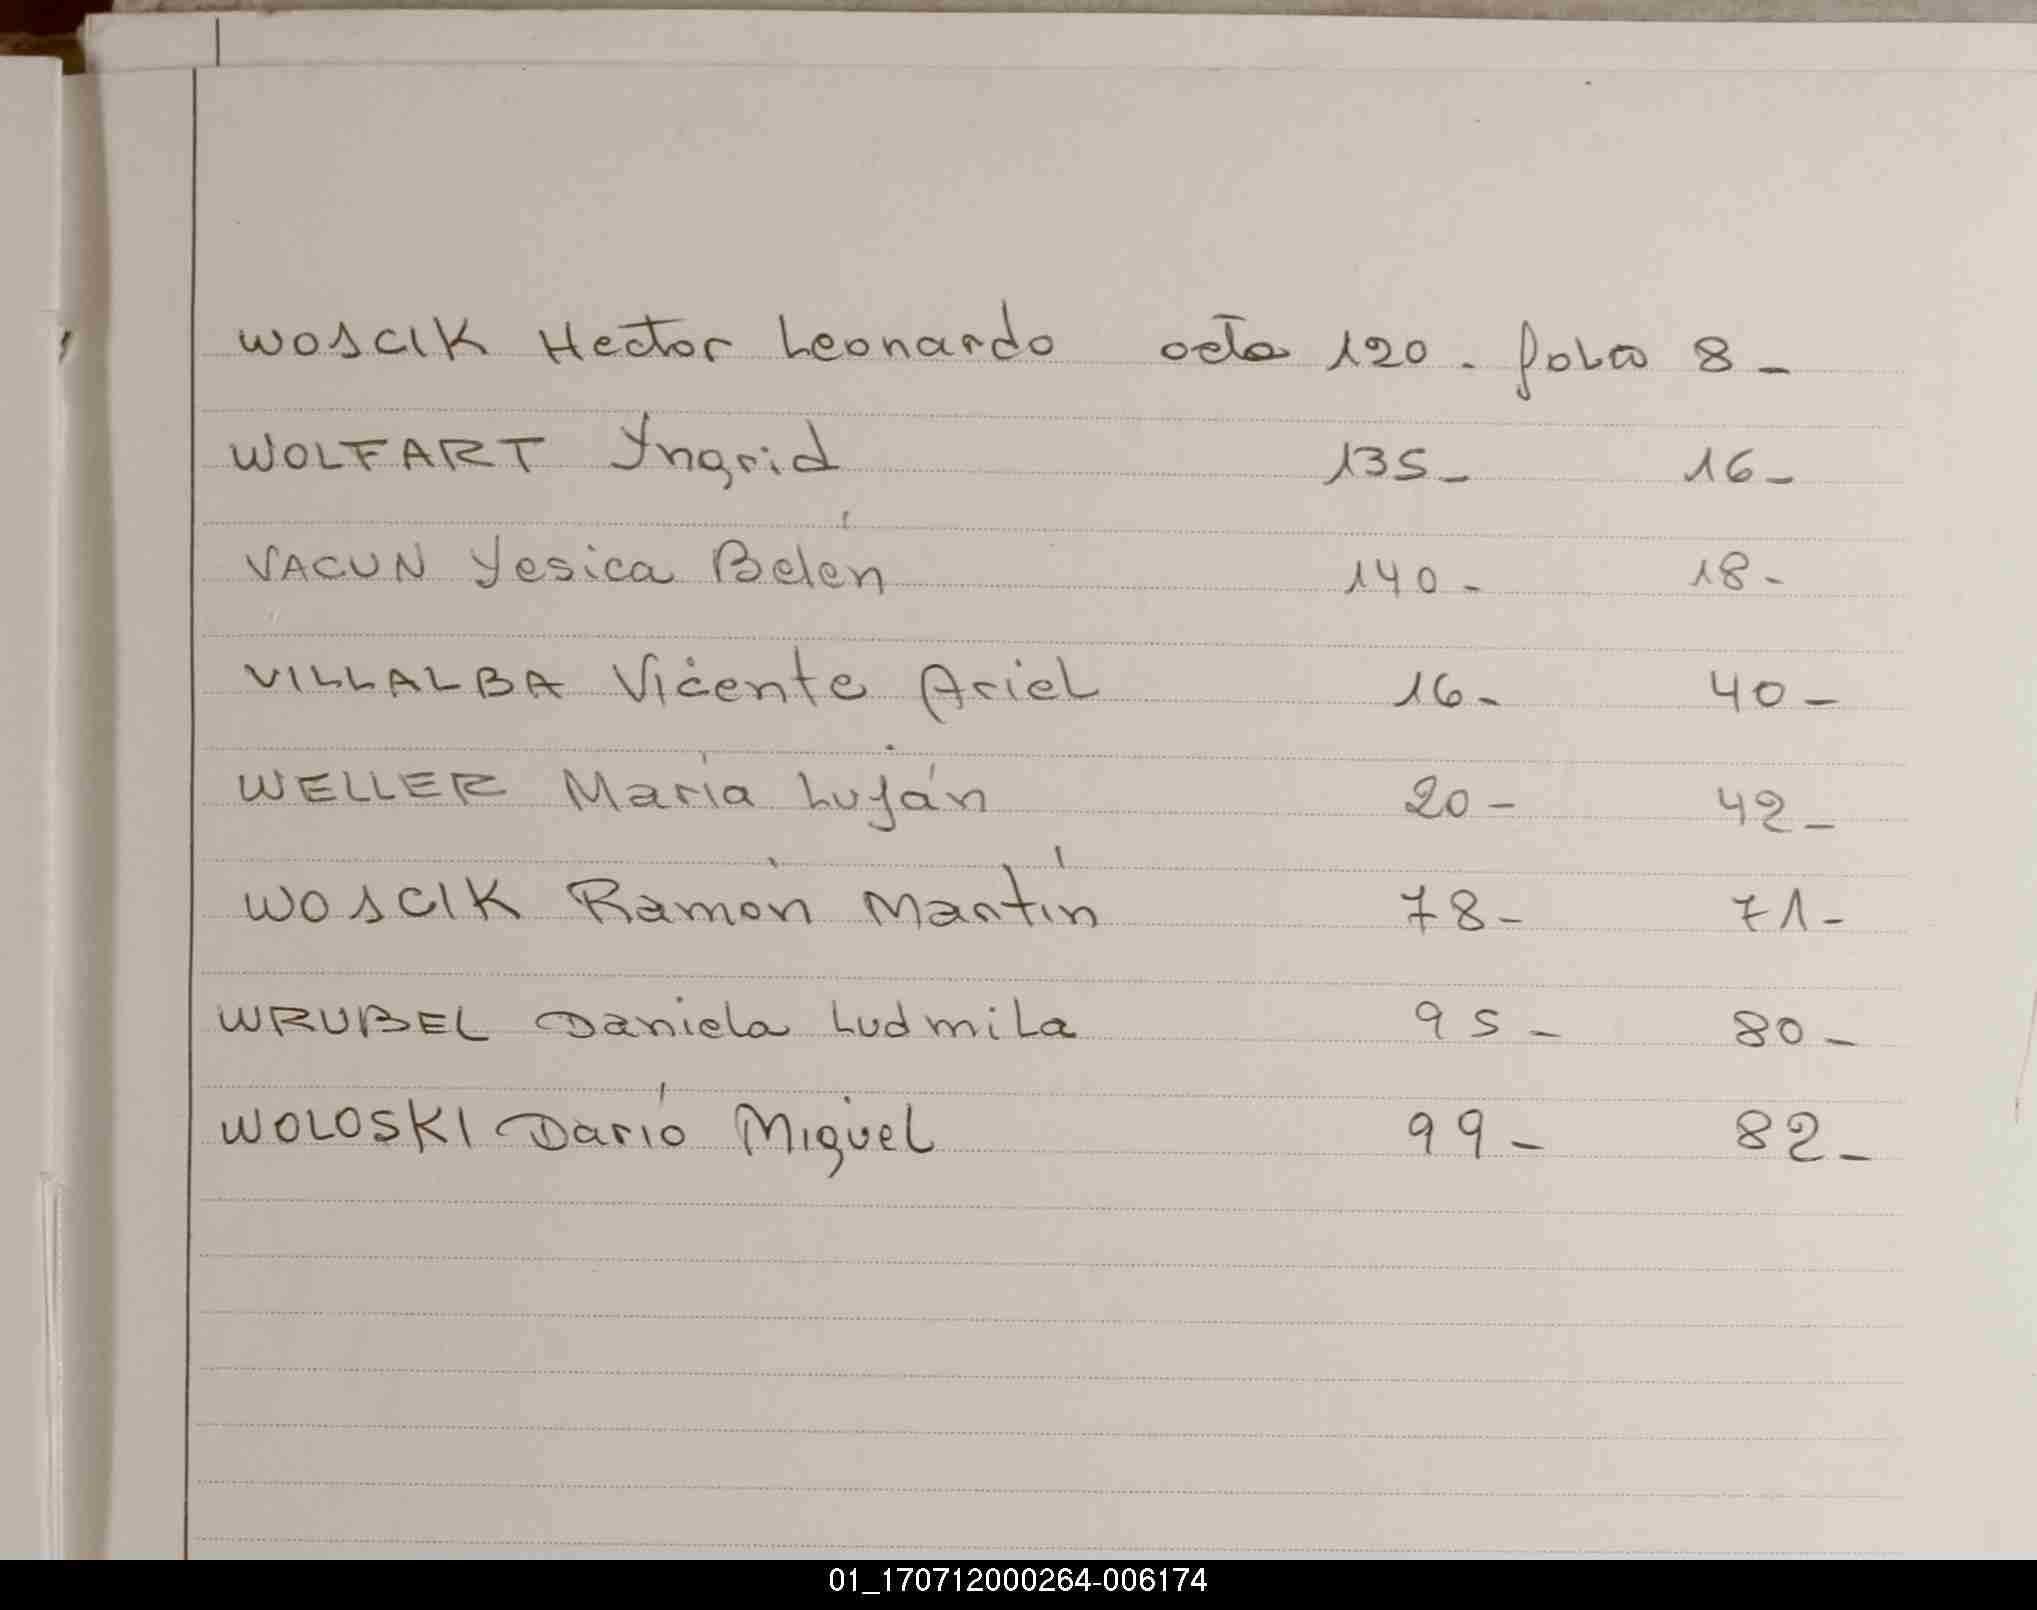 WOSCIK Hector Leonardo acta 120 - folio 8 -
WOLFART Yngrid 135 - 16 -
VACUN Yesica Belén 140 - 18 -
VILLALBA Vicente Ariel 16 - 40 -
WELLER María Luján 20 - 42 -
WOSCIK Ramón Martín 78 - 71 -
WRUBEL Daniela Ludmila 95 - 80 -
WOLOSKI Darío Miguel 99 - 82 -
01_170712000264-006174